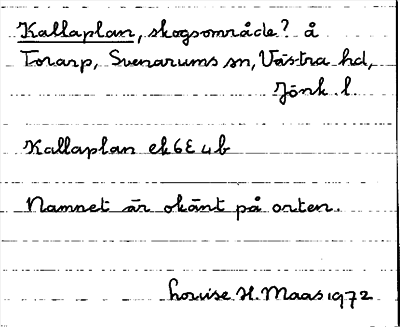 Kallaplan, skogsområde? å
Torarp, Svenarums sn, Västra hd,
Jönk. l.
Kallaplan ek 6E 4b
Namnet är okänt på orten.
Louise H. Maas 1972